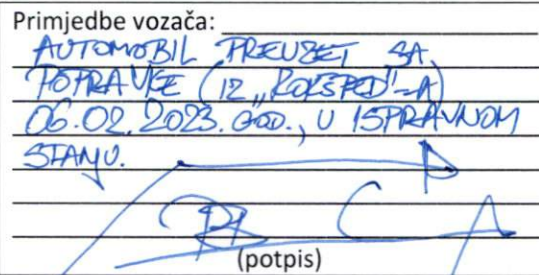 Primjedbe vozača:
AUTOMOBIL PREUZET SA
POPRAVKE (IZ „ROKSPED"-A)
06.02.2023. GOD., U ISPRAVNOM
STANJU.
(potpis)